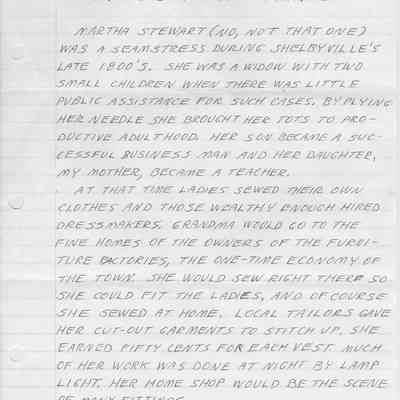 MARTHA STEWART (NO, NOT THAT ONE)
WAS A SEAMSTRESS DURING SHELBYVILLE'S
LATE 1800'S. SHE WAS A WIDOW WITH TWO
SMALL CHILDREN WHEN THERE WAS LITTLE
PUBLIC ASSISTANCE FOR SUCH CASES. BY PLYING
HER NEEDLE SHE BROUGHT HER TOTS TO PRO-
DUCTIVE ADULTHOOD. HER SON BECAME A SUC-
CESSFUL BUSINESS MAN AND HER DAUGHTER,
MY MOTHER, BECAME A TEACHER.
AT THAT TIME LADIES SEWED THEIR OWN
CLOTHES AND THOSE WEALTHY ENOUGH HIRED
DRESSMAKERS. GRANDMA WOULD GO TO THE
FINE HOMES OF THE OWNERS OF THE FURNI-
TURE FACTORIES, THE ONE-TIME ECONOMY OF
THE TOWN. SHE WOULD SEW RIGHT THERE SO
SHE COULD FIT THE LADIES, AND OF COURSE
SHE SEWED AT HOME. LOCAL TAILORS GAVE
HER CUT-OUT GARMENTS TO STITCH UP. SHE
EARNED FIFTY CENTS FOR EACH VEST. MUCH
OF HER WORK WAS DONE AT NIGHT BY LAMP
LIGHT. HER HOME SHOP WOULD BE THE SCENE
OF MANY FITTINGS